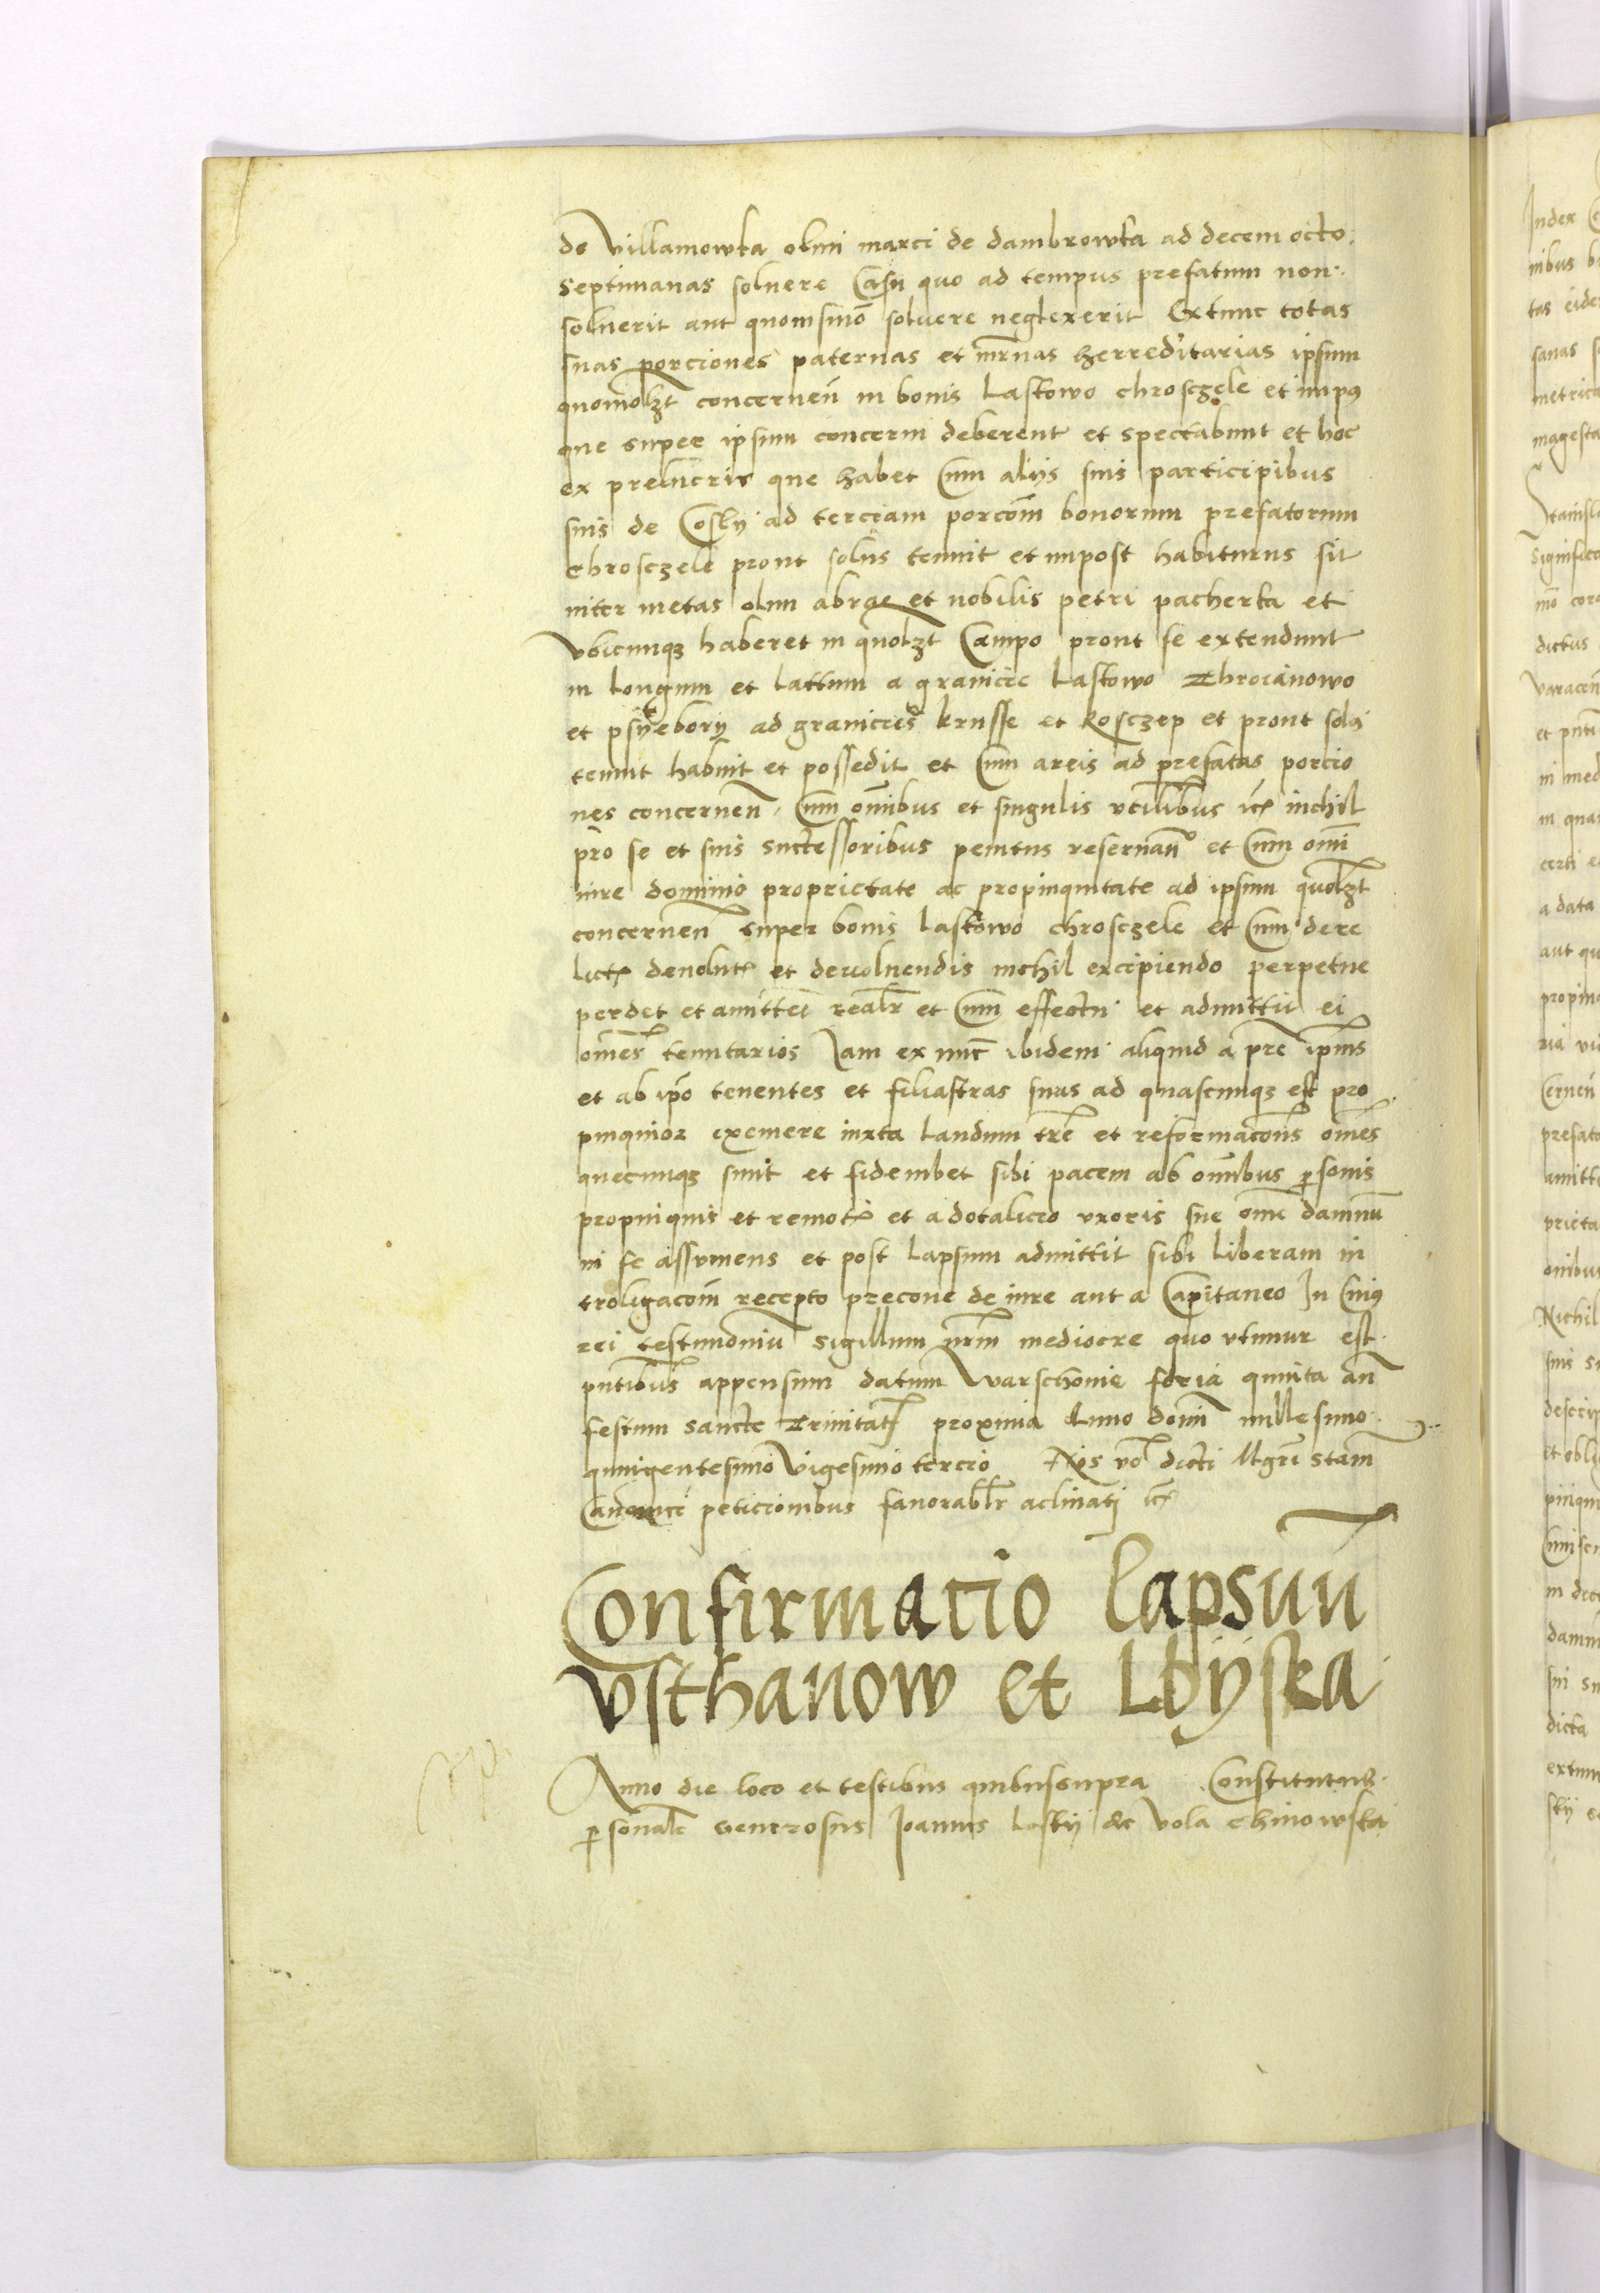 de Villamowka olim marci de dambrowka ad decem octo
septimanas soluere Casu quo ad tempus prefatum non
soluerit aut quouismo͞ soluere neglexerit Extunc totas
suas porciones paternas et mr͞nas herreditarias ipsum
quomolꝫt concernen͞ in bonis Lastowo chrosczele et impꝰ
que super ipsum concerni deberent et spectabunt et hoc
ex que habet Cum alijs suis participibus
suis de Cosky ad terciam porcōm bonorum prefatorum
chrosczele prout solus tenuit et inpost habiturus sit
inter metas olim abrae et nobilis petri pacherka et
vbicumqꝫ haberet in quolꝫt Campo prout se extendunt
in longum et lattum a granicie Lastowo Zbroianowo
et ad granicies krusse et Rosczep et prout solꝰ
tenuit habuit et possedit et Cum areis ad prefatas porcio
nes concernen͞ Cum om͞ibus et singulis vtilibus ic͞ inchil
pro se et suis suctessoribus penitus reseruan͞o et Cum omi͞
iure dominio proprietate ac propinquitate ad ipsum quolꝫt
concernen͞ super bonis Lastowo chrosczele et Cum dere
lict͞ deuolut͞ et deuoluendis inchil excipiendo perpetue
perdet et amittet realr͞ et Cum effectu et admittit ei
omēs tenutarios Iam ex nuc͞ ibidem aliquid a pre͞ ipius
et ab ip͞o tenentes et filiastras suas ad quascumqꝫ est pro
pinquior exemere iuxta laudum tre͞ et reformacōīs omēs
quecumqꝫ sunt et fideiubet sibi pacem ab om͞ibus ꝑsonis
propinquis et remot͞ et a dotalicio vxoris sue om͞e damnū
in se assumens et post lapsum admittit sibi liberam in
troligacōm recepto precone de iure aut a Capitaneo In Cuiꝰ
rei testimoniū sigillum nr͞m mediocre quo vtimur est
pn͞tibus appensum datum Warschouie feria quinta an͞
festum sancte Trinitat͞ proxima Anno domi͞ millesimo
quingentesimo Vigesimo tercio Nos vo͞ dicti Mgr͞i stani͞
peticionibus fauorablr͞ aclinati ic͞
Confirmacio Lapsuu͞
vsthanow et Lbyska
Anno die loco et testibus quibussupra Constitutus
ꝑsonalr͞ Generosus Ioannes Lasky de Vola chinowska